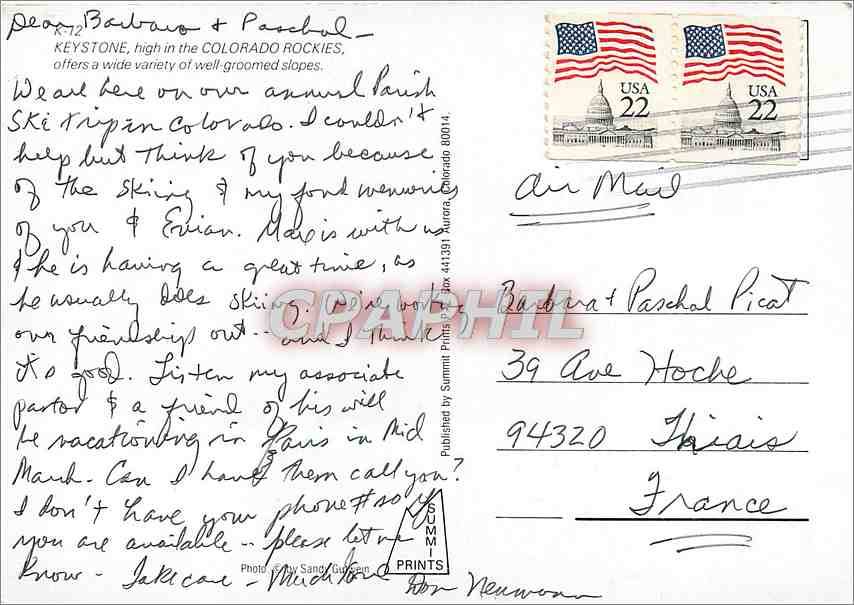 Dear Barbara & Paschal –
K-12
KEYSTONE, high in the COLORADO ROCKIES,
offers a wide variety of well-groomed slopes.
We are here on our annual Parish
Ski trip in Colorado. I couldn't
help but think of you because
of the skiing & my fond memories
of you & Evian. Max is with us
& he is having a great time, as
he usually does skiing. We're working
our friendships out -- and I think
it's good. Listen my associate
pastor & a friend of his will
be vacationing in Paris in Mid
March. Can I have them call you?
I don't have your phone # so if
you are available -- please let me
know – Take care – Much love
Don Neumann
Photo © by Sandy
SUMMIT
PRINTS
Published by Summit Prints P.O. Box 441391 Aurora, Colorado 80014.
USA
22
USA
22
Air Mail
Barbara & Paschal Picat
39 Ave Hoche
94320 Thiais
France
CPAPHIL